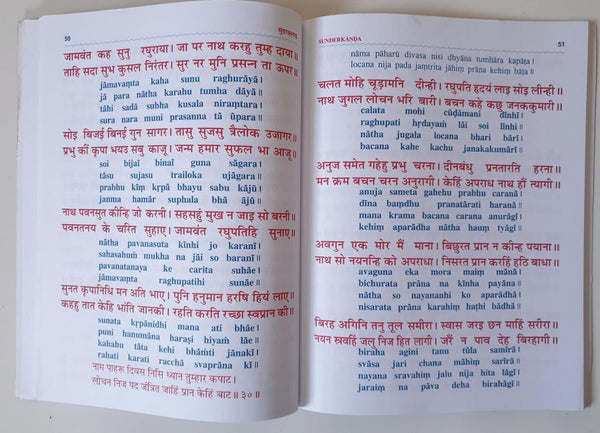 50 सुंदरकाण्ड
जामवंत कह सुनु रघुराया। जा पर नाथ करहु तुम्ह दाया॥
ताहि सदा सुभ कुसल निरंतर। सुर नर मुनि प्रसन्न ता ऊपर॥
jāmavaṁta kaha sunu raghurāyā।
jā para nātha karahu tumha dāyā॥
tāhi sadā subha kusala niraṁtara।
sura nara muni prasanna tā ūpara॥
सोइ बिजई बिनई गुन सागर। तासु सुजसु त्रैलोक उजागर॥
प्रभु कीं कृपा भयउ सबु काजू। जन्म हमार सुफल भा आजू॥
soi bijaī binaī guna sāgara।
tāsu sujasu trailoka ujāgara॥
prabhu kīṁ kṛpā bhayu sabu kājū।
janma hamār suphala bhā ājū॥
नाथ पवनसुत कीन्हि जो करनी। सहसहुँ मुख न जाइ सो बरनी॥
पवनतनय के चरित सुहाए। जामवंत रघुपतिहि सुनाए॥
nātha pavanasuta kīnhi jo karanī।
sahasahuṁ mukha na jāi so baranī॥
pavanatanaya ke carita suhāe।
jāmavaṁta raghupatihi sunāe॥
सुनत कृपानिधि मन अति भाए। पुनि हनुमान हरषि हियँ लाए॥
कहहु तात केहि भाँति जानकी। रहति करति रच्छा स्वप्रान की॥
sunata kṛpānidhi mana ati bhāe।
puni hanumāna haraṣi hiyaṁ lāe॥
kahahu tāta kehi bhāṁti jānakī।
rahati karati racchā svaprāna kī॥
नाम पाहरू दिवस निसि ध्यान तुम्हार कपाट।
लोचन निज पद जंत्रित जाहिं प्रान केहिं बाट॥३०॥
SUNDERKĀṆḌA 51
nāma pāharū divasa nisi dhyāna tumhāra kapāṭa।
locana nija pada jaṁtrita jāhiṁ prāna kehiṁ bāṭa॥
चलत मोहि चूड़ामनि दीन्ही। रघुपति हृदयँ लाइ सोइ लीन्ही॥
नाथ जुगल लोचन भरि बारी। बचन कहे कछु जनककुमारी॥
calata mohi cūḍāmani dīnhī।
raghupati hṛdayaṁ lāi soi līnhī॥
nātha jugala locana bhari bārī।
bacana kahe kachu janakakumārī॥
अनुज समेत गहेहु प्रभु चरना। दीनबंधु प्रनतारति हरना॥
मन क्रम बचन चरन अनुरागी। केहिं अपराध नाथ हौं त्यागी॥
anuja sameta gahehu prabhu caranā।
dīna baṁdhu pranatārati haranā॥
mana krama bacana carana anurāgī।
kehiṁ aparādha nātha hauṁ tyāgī॥
अवगुन एक मोर मैं माना। बिछुरत प्रान न कीन्ह पयाना॥
नाथ सो नयनन्हि को अपराधा। निसरत प्रान करहिं हठि बाधा॥
avaguna eka mora maiṁ mānā।
bichurata prāna na kīnha payānā॥
nātha so nayananhi ko aparādhā।
nisarata prāna karahiṁ haṭhi bādhā॥
बिरह अगिनि तनु तूल समीरा। स्वास जरइ छन माहिं सरीरा॥
नयन स्रवहिं जलु निज हित लागी। जरैं न पाव देह बिरहागी॥
biraha agini tanu tūla samīrā।
svāsa jari chana māhiṁ sarīrā॥
nayana sravahiṁ jalu nija hita lāgī।
jaraiṁ na pāva deha birahāgī॥